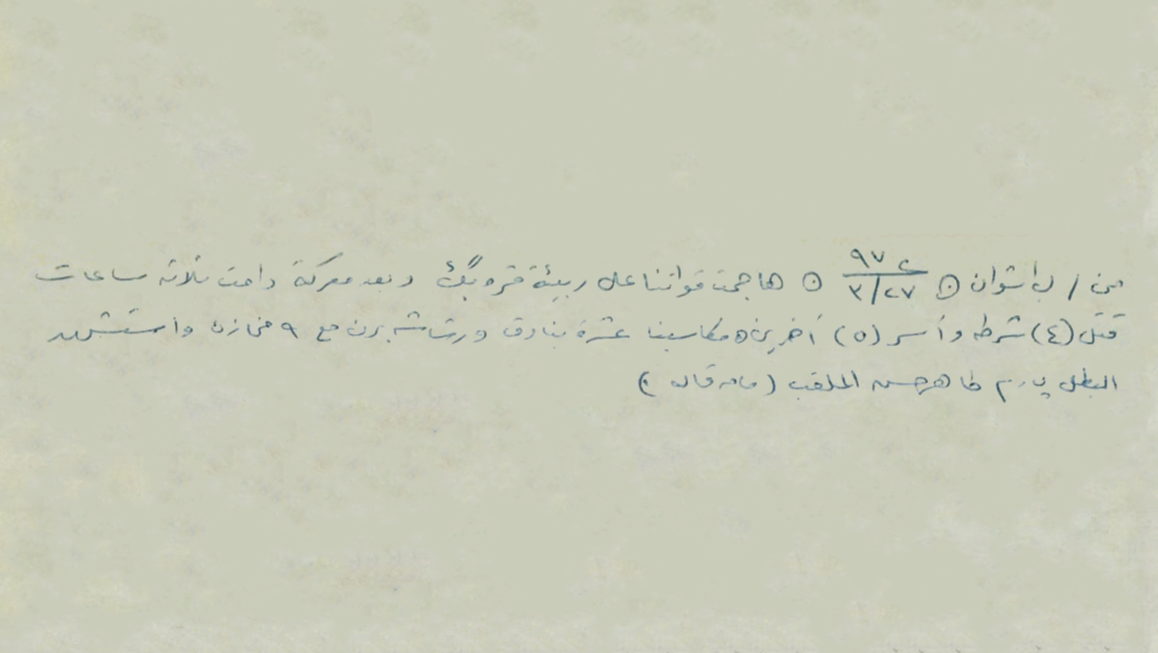 من / ل اشوان ⊙ ع ٩٧ ٣/٢٧ ⊙ هاجمت قواتنا على ربيئة قره بگ وبعد معركة دامت ثلاثه ساعات
قتل (٤) شرطه وأسر (٥) آخرين ٥ مكاسبنا عشرة بنادق ورشاشه برن مع ٩ مخازن واستشهد
البطل پ.م طاهر حسن الملقب (مامه قاله)